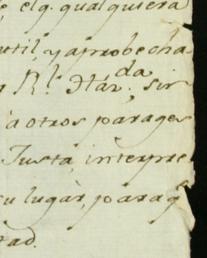 elq. qualquiera
util, y aprobecha
Rl. Hazda. sin
a otros parages
Justa, interpre
su lugar, parag
tad.